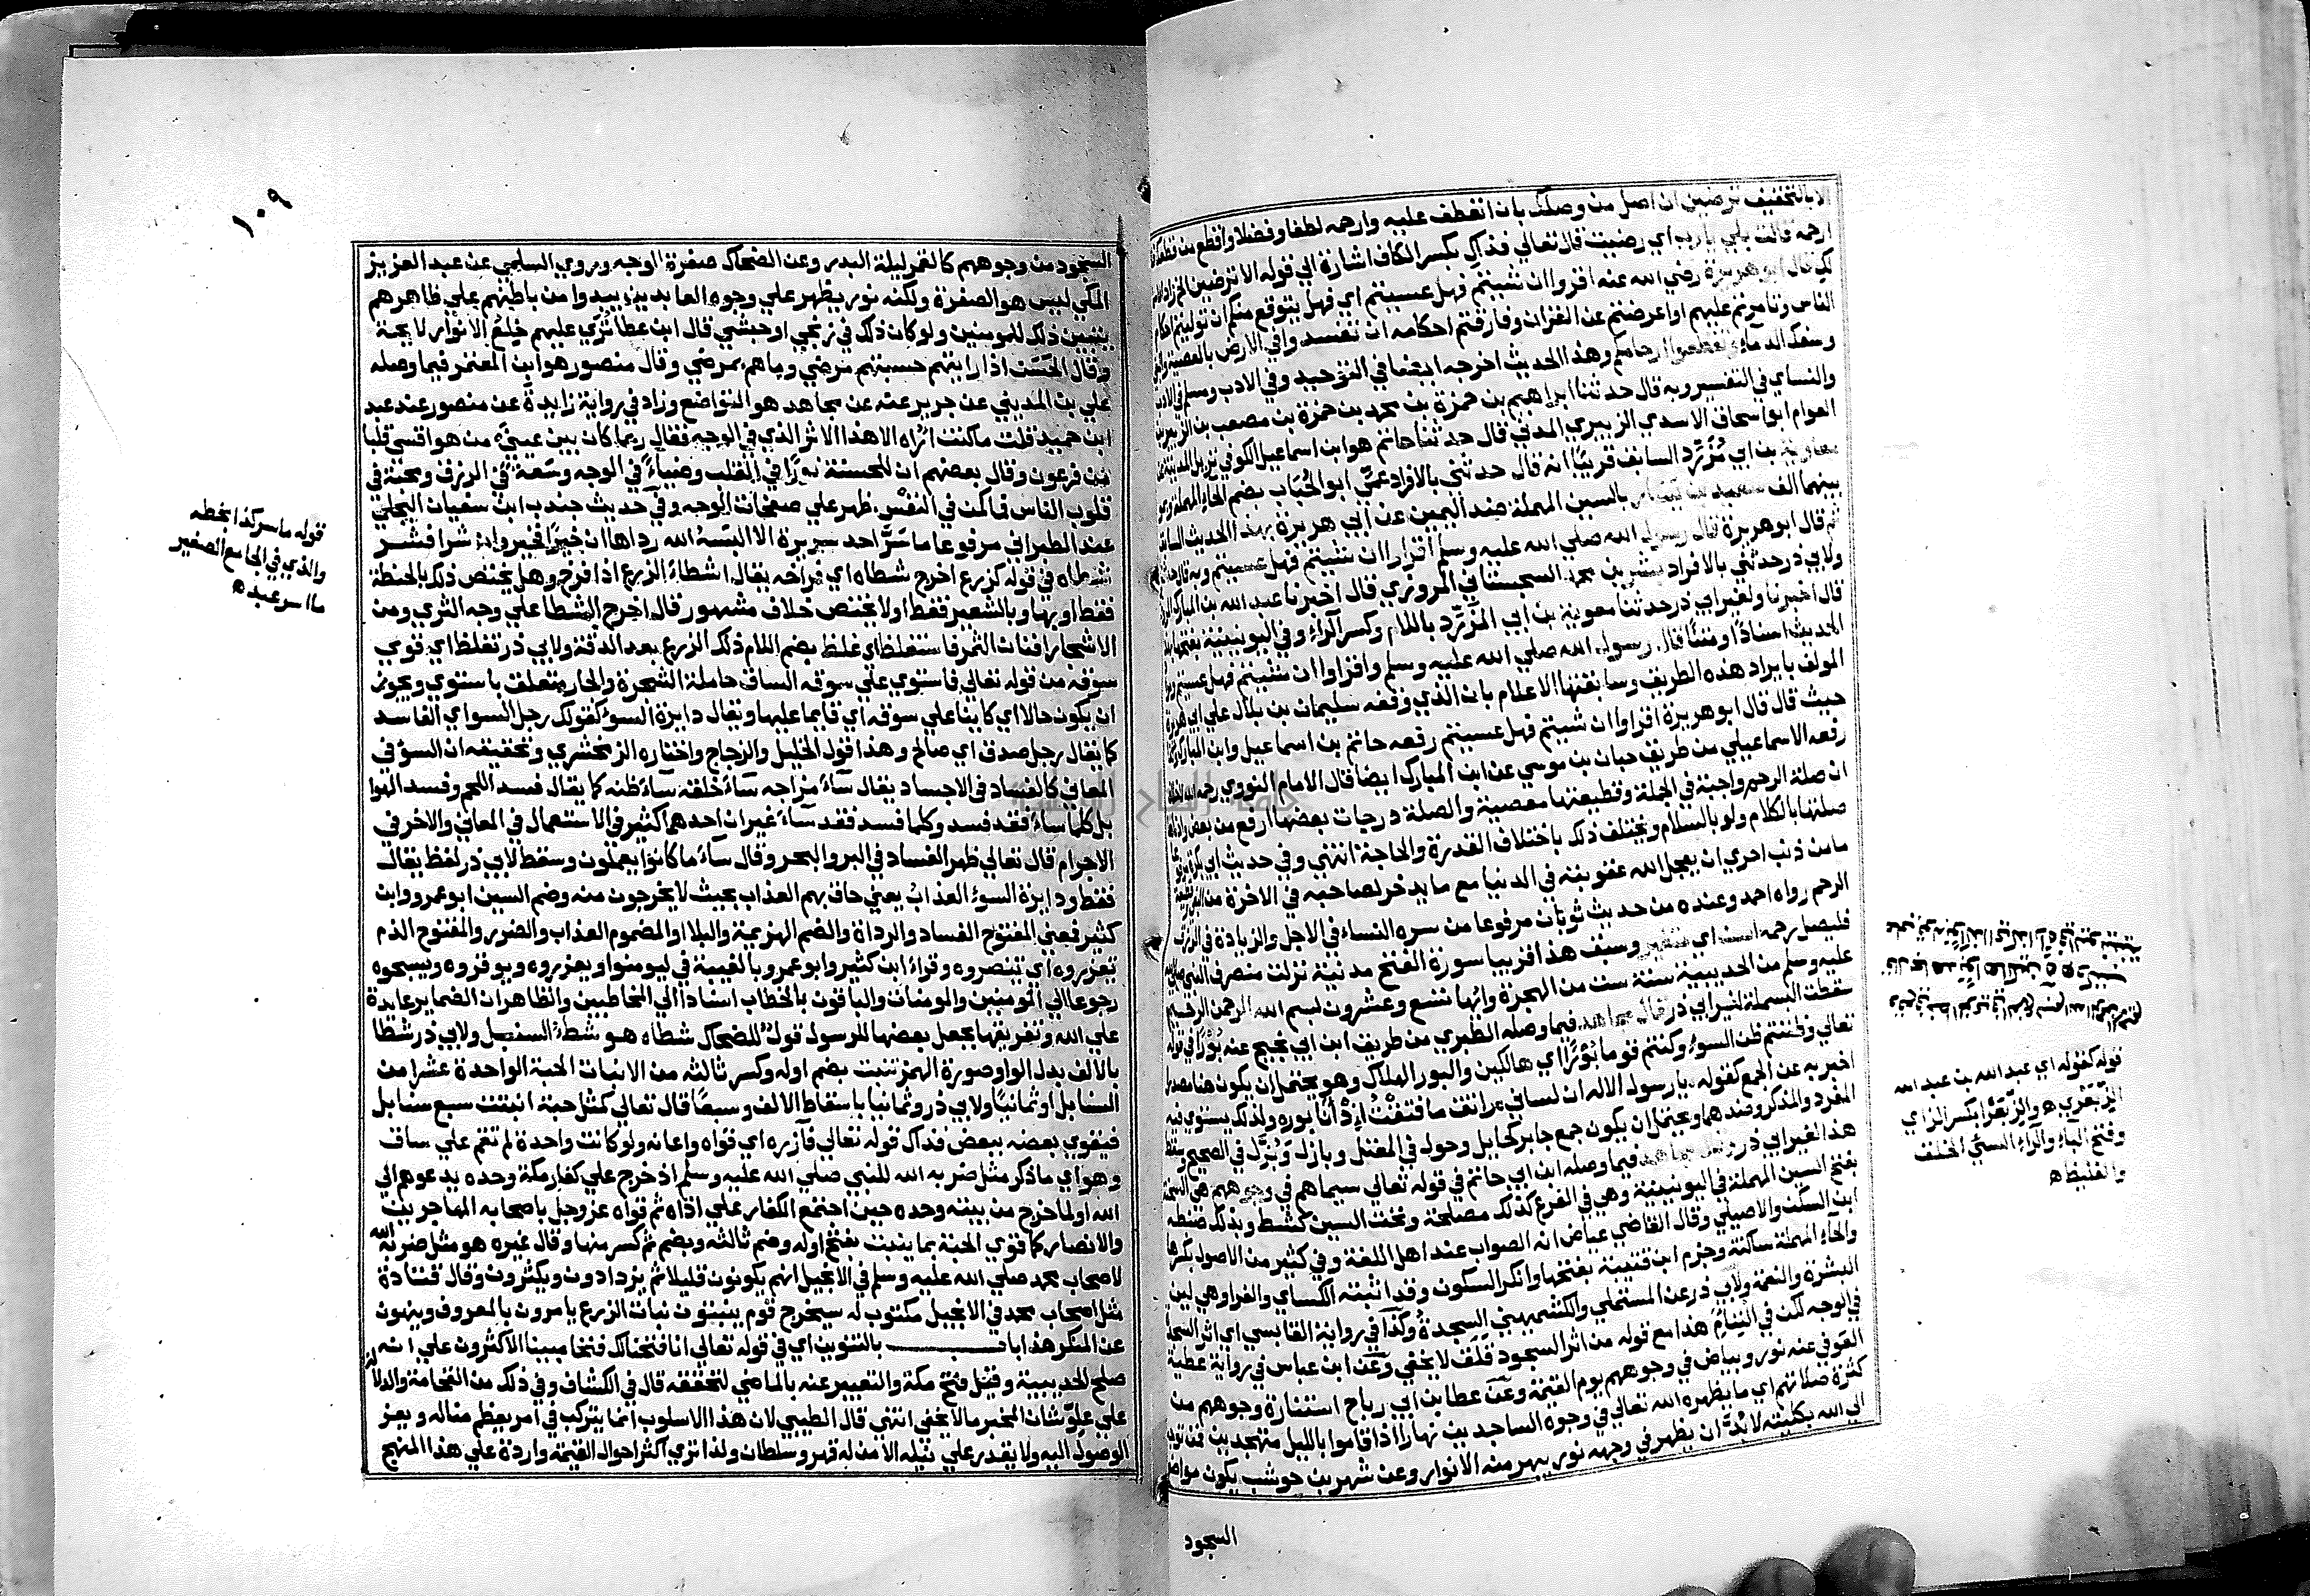 الا بالتخفيف ترضين ان اصل من وصلك بان اتعطف عليه وارحمه لطفا وفضلا واقطع من قطعك فلا
ارحمه قالت بلي يا رب اي رضيت قال تعالي فذاك بكسر الكاف اشارة الي قوله الا ترضين الخ زاد
لك قال ابو هريرة رضي الله عنه اقروا ان شيتم فهل عسيتم اي فهل يتوقع منكم ان توليتم احكام
الناس وتامرتم عليهم او اعرضتم عن القران وفارقتم احكامه ان تفسدوا في الارض بالمعصية
وسفك الدما وتقطعوا ارحامكم وهذا الحديث اخرجه ايضا في التوحيد وفي الادب ومسلم في الادب
والنساي في التفسير وبه قال حدثنا ابراهيم بن حمزة بن محمد بن حمزة بن مصعب بن الزبير بن
العوام ابو اسحاق الاسدي الزبيري المدني قال حدثنا حاتم هو ابن اسماعيل الكوفي نزيل المدينة عن
معاوية بن ابي مُزَرِّد السابق قريبًا انه قال حدثني بالافراد عمّي ابو الحُبَاب بضم الحاء المهملة
بينهما الف سعيد بن يسار بالسين المهملة ضد اليمين عن ابي هريرة بهذا الحديث السابق
ثم قال ابو هريرة قال رسول الله صلي الله عليه وسلم اقراوا ان شيتم فهل عسيتم وبه قال
ولابي ذر حدثني بالافراد بشر بن محمد السجستاني المروزي قال اخبرنا عبد الله بن المبارك
قال اخبرنا ولغير ابي ذر حدثنا معوية بن ابي المُزَرِّد باللام وكسر الراء وفي اليونينية بفتحها
الحديث اسنادًا ومتنًا قال رسول الله صلي الله عليه وسلم واقراوا ان شيتم فهل عسيتم
المولف بايراد هذه الطريق وسابقتها الاعلام بان الذي وقفه سليمان بن بلال علي ابي هريرة
حيث قال قال ابو هريرة اقراوا ان شيتم فهل عسيتم رفعه حاتم بن اسماعيل وابن المبارك
رفعه الاسماعيلي من طريق حبان بن موسي عن ابن المبارك ايضا قال الامام النووي رحمه الله
ان صلة الرحم واجبة في الجملة وقطيعتها معصية والصلة درجات بعضها ارفع من بعض
صلتها بالكلام ولو بالسلام ويختلف ذلك باختلاف القدرة والحاجة انتهي وفي حديث ابي بكرة
ما من ذنب احري ان يعجل الله عقوبته في الدنيا مع ما يدخر لصاحبه في الاخرة من البغي وقطيعة
الرحم رواه احمد وعنده من حديث ثوبان مرفوعا من سره النساء في الاجل والزيادة في الرزق
فليصل رحمه وسبق هذا قريبا سورة الفتح مدنية نزلت منصرف النبي صلي الله
عليه وسلم من الحديبية سنة ست من الهجرة وايها تسع وعشرون بسم الله الرحمن الرحيم
سقطت البسملة لغير ابي ذر قال مجاهد فيما وصله الطبري من طريق ابن ابي نجيح عنه بُورًا في قوله
تعالي وظننتم ظن السوء وكنتم قوما بُورًا اي هالكين والبور الهلاك وهو يحتمل ان يكون هنا مصدر
اخبر به عن الجمع كقوله يا رسول الاله ان لساني راتق ما فتقت اذ انا بور ولذلك يستوي فيه
المفرد والمذكر وضدهما ويحتمل ان يكون جمع جاير كحايل وحول في المعتل وبازل وبُزل في الصحيح وسقط
هذا لغير ابي ذر وقال مجاهد فيما وصله ابن ابي حاتم في قوله تعالي سيماهم في وجوههم هي السحنة
بفتح السين المهملة في اليونينية وهي في الفرع كذلك مصلحة وتحت السين كشط وبذلك ضبطه
ابن السكن والاصيلي وقال القاضي عياض انه الصواب عند اهل اللغة وفي كثير من الاصول بكسرها
والحاء المهملة ساكنة وجزم ابن قتيبة بفتحها وانكر السكون وقد اثبته الكساي والفرا وهي لين
البشرة والنعمة ولابي ذر عن المستملي والكشميهني السجدة وكذا في رواية القابسي اي اثر السجدة
في الوجه لكن في التيام هذا مع قوله من اثر السجود قلق لا يخفي وعن ابن عباس في رواية عطية
العوفي عنه نور وبياض في وجوههم يوم القيمة وعن عطا بن ابي رباح استنارة وجوههم من
كثرة صلاتهم اي ما يظهره الله تعالي في وجوه الساجدين نهارا اذا قاموا بالليل متهجدين فمن توجه
الي الله بكليته لا بُدَّ ان يظهر في وجهه نور يبهر منه الانوار وعن شهر بن حوشب يكون مواضع
السجود
قوله كقوله اي عبد الله بن عبد الله
الزِّبَعْري ه والزِّبَعْرا بكسر الزاي
وفتح الباء والراء السيّئ الخلق
والغليظ ه
١٠٩
السجود من وجوههم كالقمر ليلة البدر وعن الضحاك صفرة الوجه وروي السلمي عن عبد العزيز
المكي ليس هو الصفرة ولكنه نور يظهر علي وجوه العابدين يبدوا من باطنهم علي ظاهرهم
يتبين ذلك للمومنين ولو كان ذلك في زنجي او حبشي قال ابن عطا تَرَي عليهم خِلَعُ الانوار لايحة
وقال الحَسَن اذا رايتهم حسبتهم مرضي وما هم بمرضي وقال منصور هو ابن المعتمر فيما وصله
علي بن المديني عن جرير عنه عن مجاهد هو التواضع وزاد في رواية زايدة عن منصور عند عبد
ابن حميد قلت ما كنت اُراه الا هذا الاثر الذي في الوجه فقال ربما كان بين عيني من هو اقسي قلبا
من فرعون وقال بعضهم ان للحسنة نورًا في القلب وضياءً في الوجه وسَعة في الرزق ومحبة في
قلوب الناس فما كمن في النفس ظهر علي صفحات الوجه وفي حديث جندب ابن سفيان البجلي
عند الطبراني مرفوعا ما سَرَّ احد سريرة الا البسه الله رداها ان خيرًا فخير وان شرا فشر
شطاه في قوله كزرع اخرج شطاه اي فراخه يقال اشطاء الزرع اذا فرخ وهل يختص ذلك بالحنطة
فقط او بها وبالشعير فقط او لا يختص خلاف مشهور قال اخرج الشطا علي وجه الثري ومن
الاشجار افنان الثمر فاستغلظ اي غلظ بضم اللام ذلك الزرع بعد الدقة ولابي ذر تغلظ اي قوي
سوقه من قوله تعالي فاستوي علي سوقه الساق حاملة الشجرة والجار يتعلق باستوي ويجوز
ان يكون حالا اي كاينا علي سوقه اي قايما عليها ويقال دايرة السوء كقولك رجل السواي الفاسد
كما يقال رجل صدق اي صالح وهذا قول الخليل والزجاج واختاره الزمخشري وتحقيقه ان السوء في
المعاني كالفساد في الاجساد يقال ساءَ مزاجه ساءَ خلقه ساءَ ظنه كما يقال فسد اللحم وفسد الهوا
بل كلما ساءَ فقد فسد وكلما فسد فقد ساءَ غير ان احدهما كثير في الاستعمال في المعاني والاخر في
الاجرام قال تعالي ظهر الفساد في البر والبحر وقال ساءَ ما كانوا يعملون وسقط لابي ذر لفظ يقال
فقط ودايرة السوء العذابُ يعني حاق بهم العذاب بحيث لا يخرجون منه وضم السين ابو عمرو وابن
كثير فعني المفتوح الفساد والرداة والضم الهزيمة والبلا او المضموم العذاب والضرر والمفتوح الذم
تعزروه اي تنصروه وقراءَ ابن كثير وابو عمرو بالغيبة في ليومنوا ويعزروه ويوقروه ويسبحوه
رجوعا الي المومنين والمومنات والباقون بالخطاب اسنادا الي المخاطبين والظاهر ان الضماير عايدة
علي الله وتفريقها بجعل بعضها للرسول قولٌ للضحاك شطاه هو شطء السنبل ولابي ذر شطا
بالالف بدل الواو صورة الهمز تنبت بضم اوله وكسر ثالثه من الانبات الحبة الواحدة عشرا من
السنابل او ثمانيًا ولابي ذر وثمانيا باسقاط الالف وسبعًا قال تعالي كمثل حبة انبتت سبع سنابل
فيقوي بعضه ببعض فذاك قوله تعالي فآزره اي قواه واعانه ولو كانت واحدة لم تقم علي ساق
وهو اي ما ذكر مثل ضربه الله للنبي صلي الله عليه وسلم اذ خرج علي كفار مكة وحده يدعوهم الي
الله او لما خرج من بيته وحده حين اجتمع الكفار علي اذاه ثم قواه عز وجل باصحابه المهاجرين
والانصار كما قوي الحبة بما ينبت بفتح اوله وضم ثالثه وبضم ثم كسر منها وقال غيره هو مثل ضربه الله
لاصحاب محمد صلي الله عليه وسلم في الانجيل انهم يكونون قليلا ثم يزدادون ويكثرون وقال قتادة
مثل اصحاب محمد في الانجيل مكتوب له سيخرج قوم ينبتون نبات الزرع يامرون بالمعروف وينهون
عن المنكر هذا باب بالتنوين اي في قوله تعالي انا فتحنا لك فتحا مبينا الاكثرون علي انه
صلح الحديبية وقيل فتح مكة والتعبير عنه بالماضي لتحققه قال في الكشاف وفي ذلك من الفخامة والدلالة
علي علوّ شان المخبر ما لا يخفي انتهي قال الطيبي لان هذا الاسلوب انما يرتكب في امر يعظم مناله ويعز
الوصول اليه ولا يقدر علي نيله الا من له قهر وسلطان ولذا تري اكثر احوال القيمة واردة علي هذا المنهج
قوله ما سر كذا بخطه
والذي في الجامع الصغير
ما اسر عبد ه